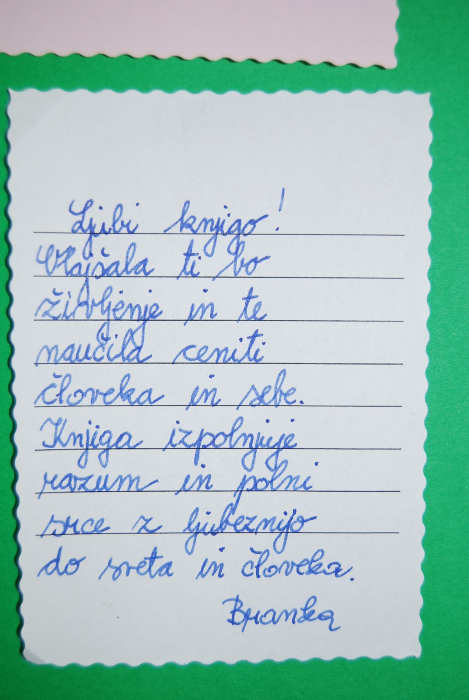 Ljubi knjigo!
Olajšala ti bo
življenje in te
naučila ceniti
človeka in sebe.
Knjiga izpolnjuje
razum in polni
srce z ljubeznijo
do sveta in človeka.
Branka